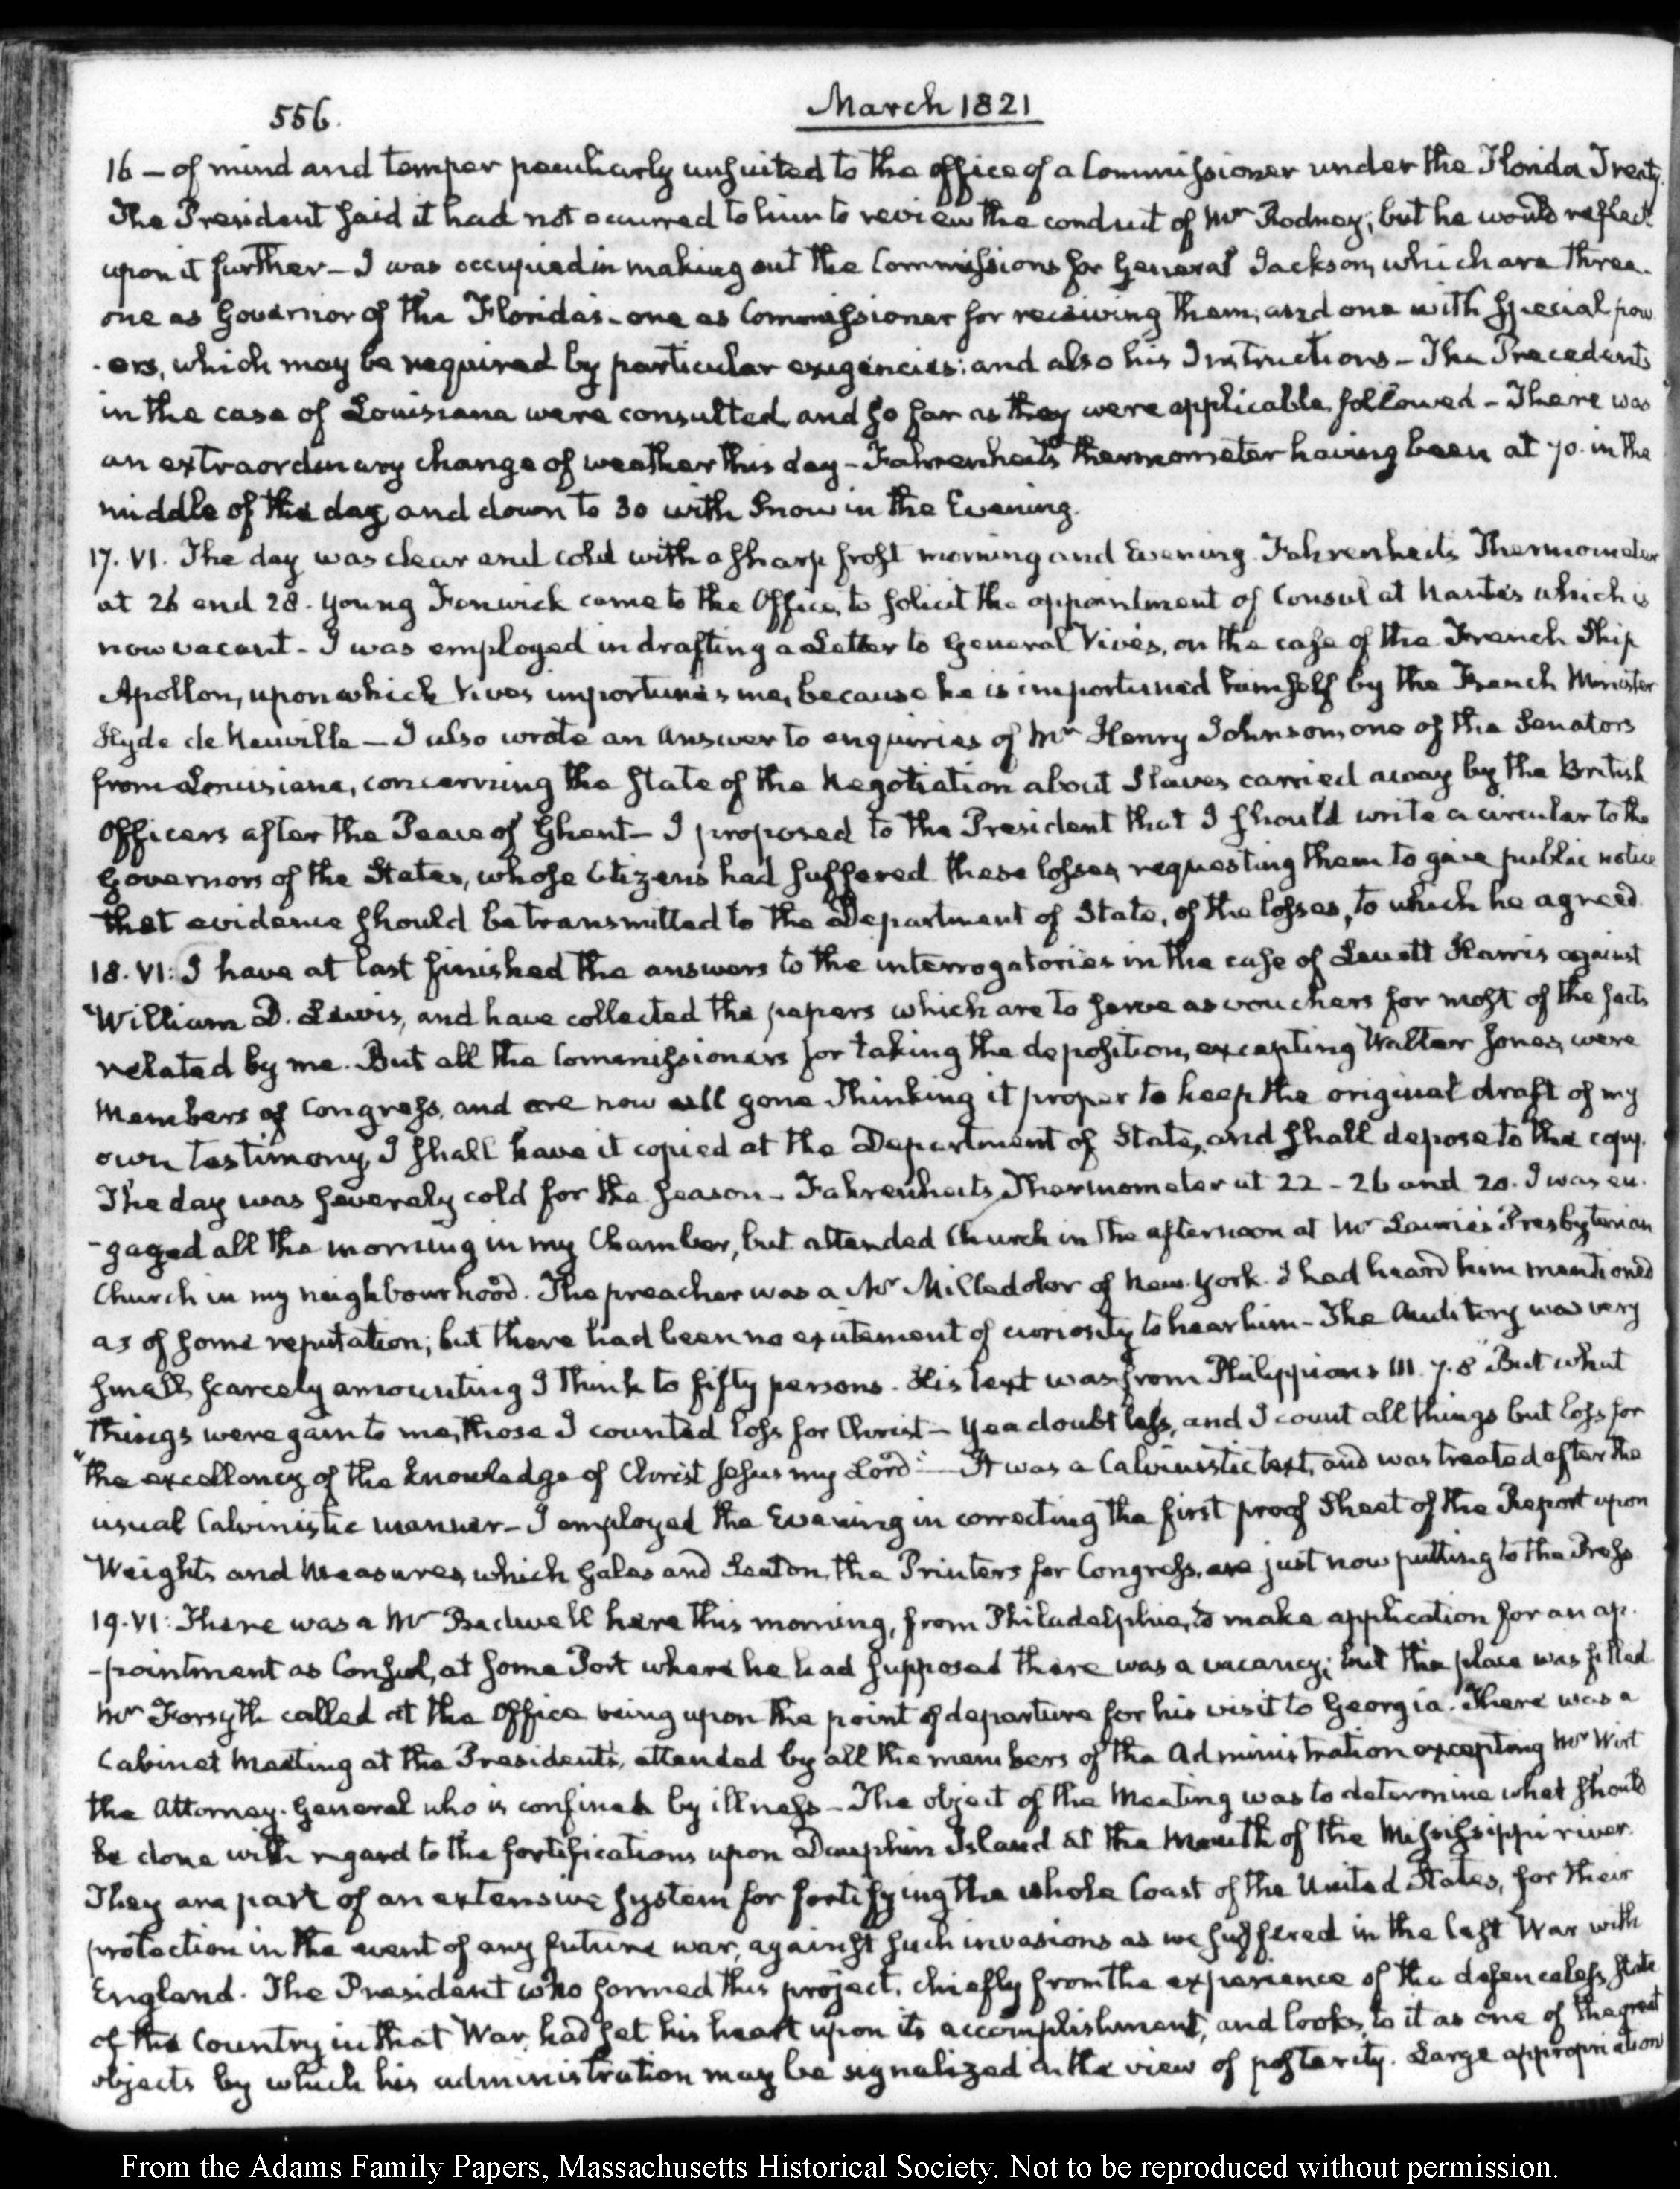 556.
March 1821
16 — of mind and temper peculiarly unsuited to the office of a Commissioner under the Florida Treaty.
The President said it had not occurred to him to review the conduct of Mr Rodney; but he would reflect
upon it further — I was occupied in making out the Commissions for General Jackson, which are three.
one as Governor of the Floridas — one as Commissioner for receiving them; and one with special pow
-ers, which may be required by particular exigencies: and also his Instructions — The Precedents
in the case of Louisiana were consulted, and so far as they were applicable, followed — There was
an extraordinary change of weather this day — Fahrenheit's thermometer having been at 70. in the
middle of the day, and down to 30 with Snow in the Evening.
17. VI. The day was clear and cold with a sharp frost morning and Evening. Fahrenheit's Thermometer
at 26 and 28. Young Fenwick came to the Office, to solicit the appointment of Consul at Nantes which is
now vacant — I was employed in drafting a Letter to General Vives, on the case of the French Ship
Apollon, upon which Vives importunes me, because he is importuned himself by the French Minister
Hyde de Neuville — I also wrote an Answer to enquiries of Mr Henry Johnson, one of the Senators
from Louisiana, concerning the state of the Negotiation about Slaves carried away by the British
Officers after the Peace of Ghent — I proposed to the President that I should write a circular to the
Governors of the States, whose Citizens had suffered these losses, requesting them to give public notice
that evidence should be transmitted to the Department of State, of the losses, to which he agreed.
18. VI: I have at last finished the answers to the interrogatories in the case of Levett Harris against
William D. Lewis, and have collected the papers which are to serve as vouchers for most of the facts
related by me. But all the Commissioners for taking the deposition, excepting Walter Jones, were
Members of Congress, and are now all gone. Thinking it proper to keep the original draft of my
own testimony, I shall have it copied at the Department of State, and shall depose to the copy.
The day was severely cold for the season — Fahrenheit's Thermometer at 22 - 26 and 20. I was en-
-gaged all the morning in my Chamber, but attended Church in the afternoon at Mr Laurie's Presbyterian
Church in my neighbourhood. The preacher was a Mr Milledoler of New-York. I had heard him mentioned
as of some reputation; but there had been no excitement of curiosity to hear him — The Auditory was very
small, scarcely amounting I think to fifty persons. His text was from Philippians III. 7. 8 "But what
things were gain to me, those I counted loss for Christ — Yea doubtless, and I count all things but loss for
"the excellency of the knowledge of Christ Jesus my Lord:" — It was a Calvinistic text, and was treated after the
usual Calvinistic manner — I employed the Evening in correcting the first proof Sheet of the Report upon
Weights and Measures, which Gales and Seaton, the Printers for Congress, are just now putting to the Press.
19. VI: There was a Mr Bedwell here this morning, from Philadelphia, to make application for an ap-
-pointment as Consul, at some Port where he had supposed there was a vacancy; but the place was filled.
Mr Forsyth called at the Office being upon the point of departure for his visit to Georgia. There was a
Cabinet Meeting at the President's, attended by all the members of the Administration excepting Mr Wirt
the Attorney-General who is confined by illness — The object of the Meeting was to determine what should
be done with regard to the fortifications upon Dauphin Island at the Mouth of the Mississippi river.
They are part of an extensive system for fortifying the whole Coast of the United States, for their
protection in the event of any future war, against such invasions as we suffered in the last War with
England. The President who formed this project, chiefly from the experience of the defenceless state
of the Country in that War, had set his heart upon its accomplishment, and looks to it as one of the great
objects by which his administration may be signalized in the view of posterity. Large appropriation
From the Adams Family Papers, Massachusetts Historical Society. Not to be reproduced without permission.